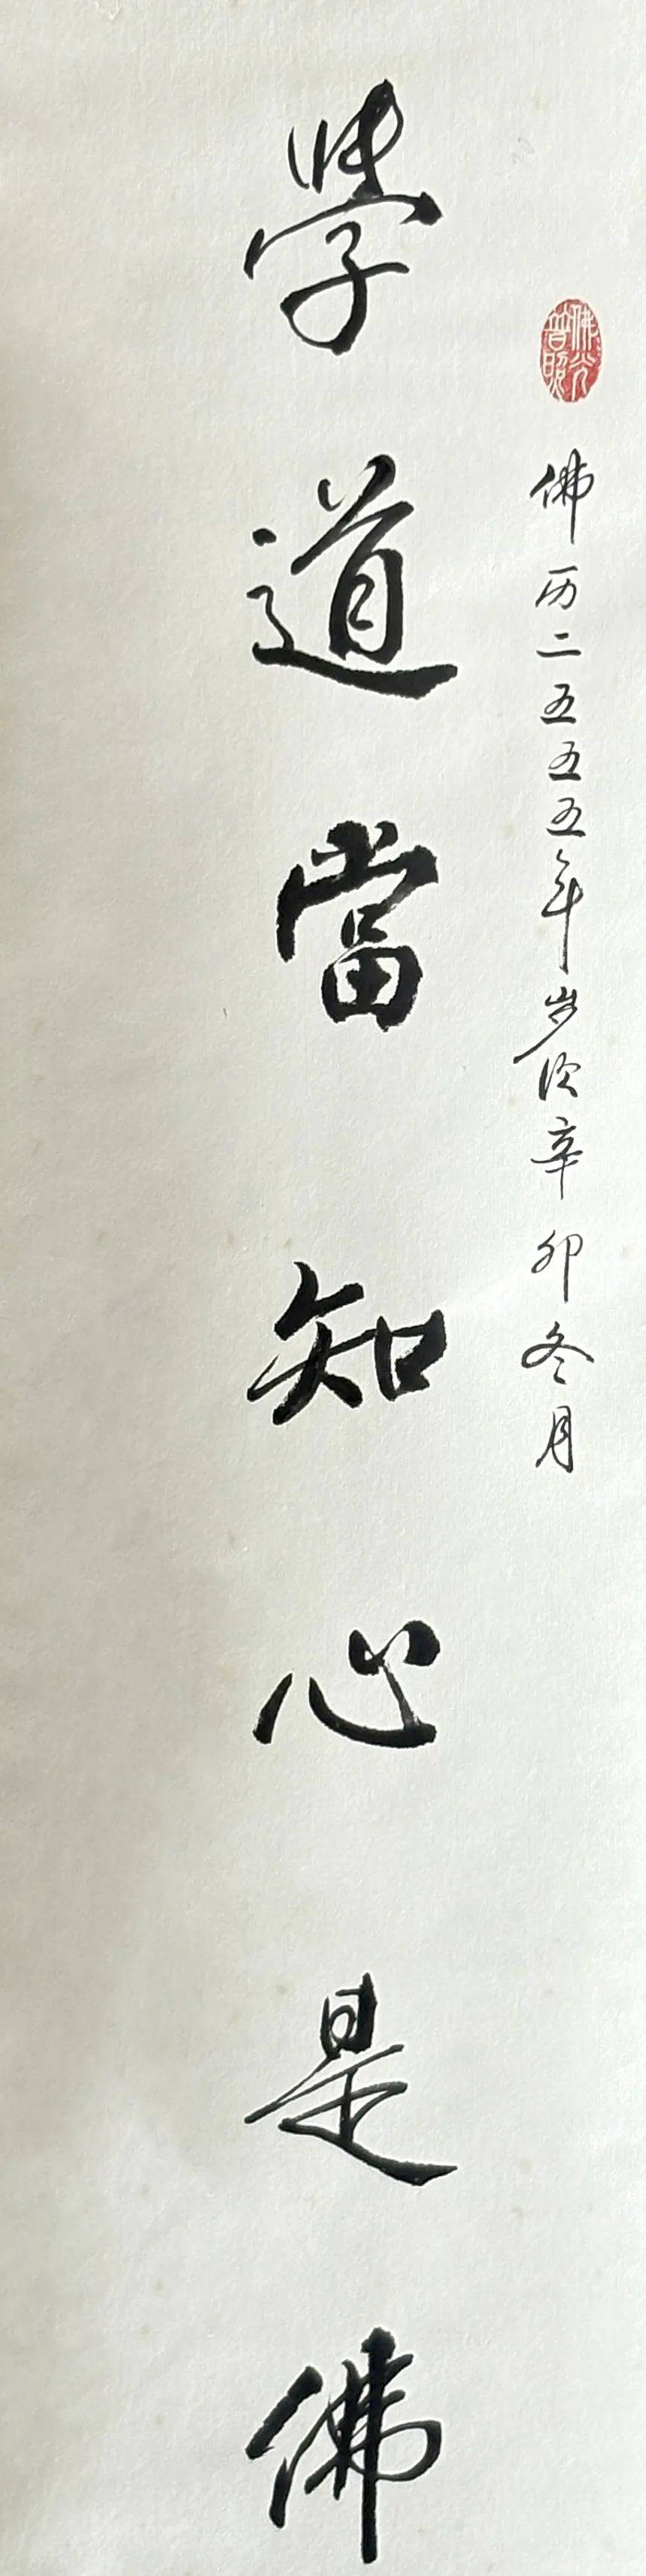 佛光普照
佛历二五五五年岁次辛卯冬月
學道當知心是佛